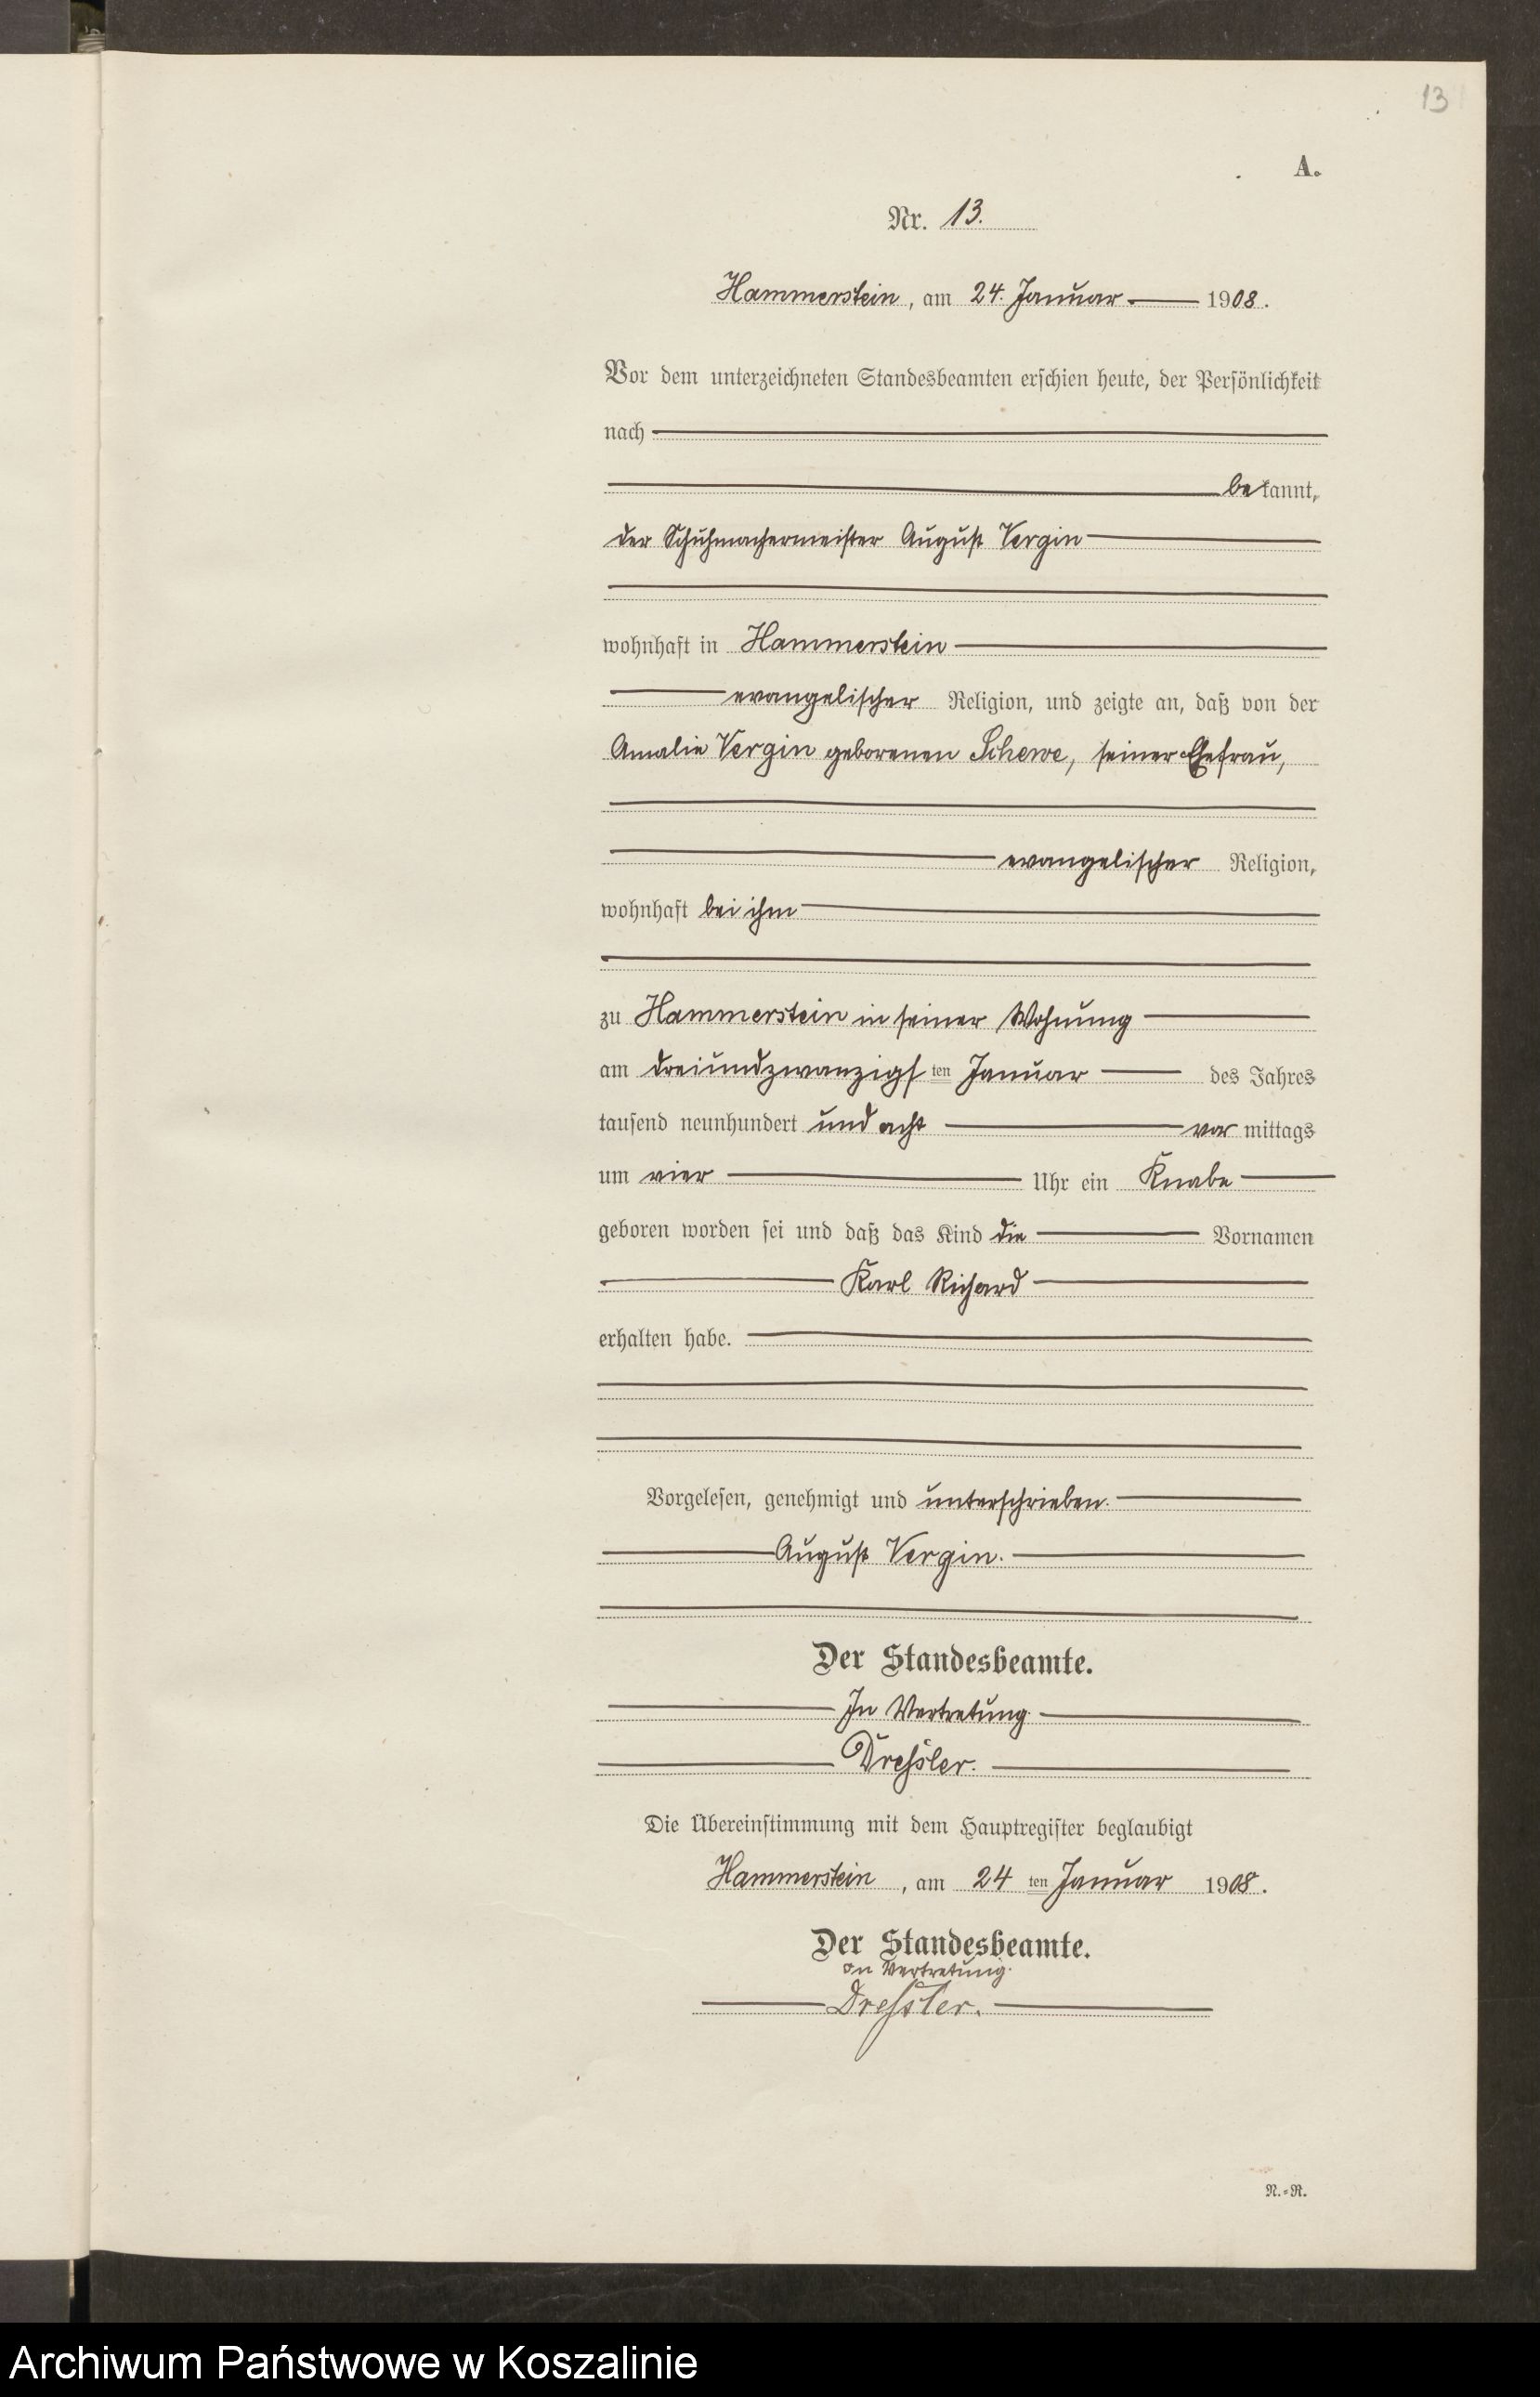 13
A.
Nr. 13.
Hammerstein, am 24. Januar 1908.
Vor dem unterzeichneten Standesbeamten erschien heute, der Persönlichkeit
nach
bekannt,
der Schuhmachermeister August Vergin
wohnhaft in Hammerstein
evangelischer Religion, und zeigte an, daß von der
Amalie Vergin geborenen Schewe, seiner Ehefrau,
evangelischer Religion,
wohnhaft bei ihm
zu Hammerstein in seiner Wohnung
am dreiundzwanzigsten Januar des Jahres
tausend neunhundert und acht vormittags
um vier Uhr ein Knabe
geboren worden sei und daß das Kind die Vornamen
Karl Richard
erhalten habe.
Vorgelesen, genehmigt und unterschrieben.
August Vergin.
Der Standesbeamte.
In Vertretung
Dressler.
Die Übereinstimmung mit dem Hauptregister beglaubigt
Hammerstein, am 24ten Januar 1908.
Der Standesbeamte.
In Vertretung.
Dressler.
N.=R.
Archiwum Państwowe w Koszalinie